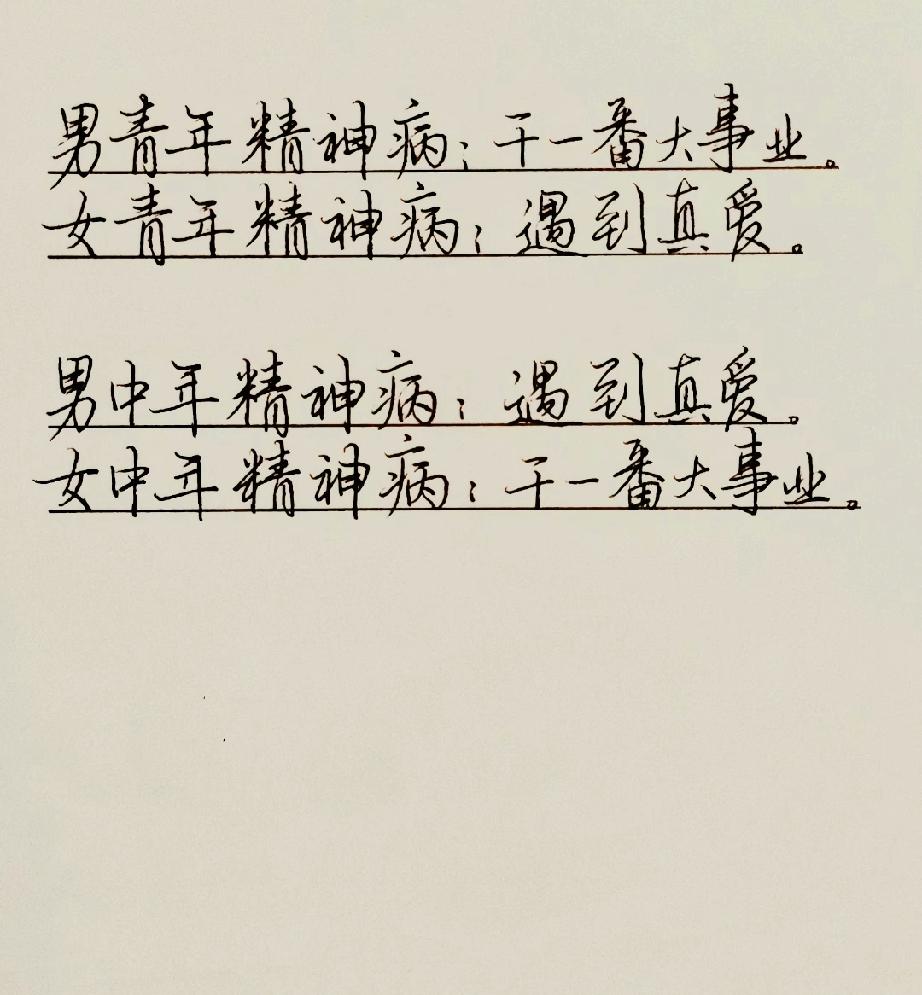 男青年精神病：干一番大事业。
女青年精神病：遇到真爱。
男中年精神病：遇到真爱。
女中年精神病：干一番大事业。